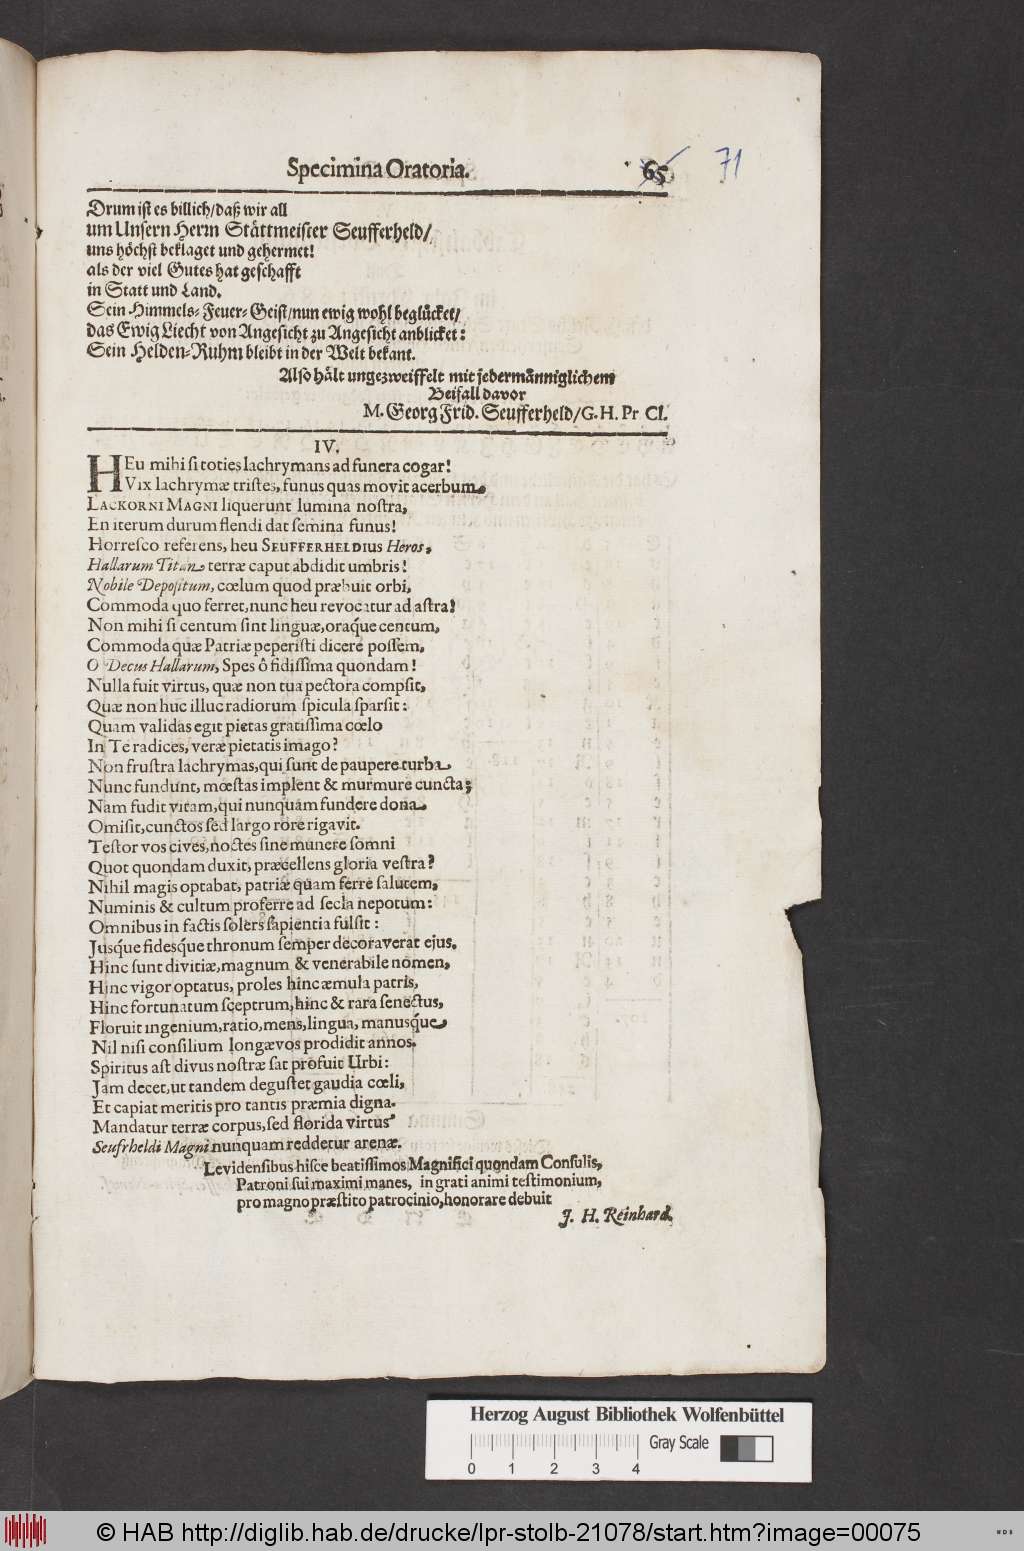 Specimina Oratoria. 65 71
Drum ist es billich/daß wir all
um Unsern Herrn Stättmeister Seufferheld/
uns höchst beklaget und gehermet!
als der viel Gutes hat geschafft
in Statt und Land.
Sein Himmels-Feuer-Geist/nun ewig wohl beglücket/
das Ewig Liecht von Angesicht zu Angesicht anblicket:
Sein Helden-Ruhm bleibt in der Welt bekant.
Also hält ungezweiffelt mit jedermänniglichem
Beifall davor
M. Georg Frid. Seufferheld/G. H. Pr Cl.
IV.
HEu mihi si toties lachrymans ad funera cogar!
Vix lachrymæ tristes, funus quas movit acerbum,
LACKORNI MAGNI liquerunt lumina nostra,
En iterum durum flendi dat semina funus!
Horresco referens, heu SEUFFERHELDIUS Heros,
Hallarum Titan terræ caput abdidit umbris!
Nobile Depositum, cœlum quod præbuit orbi,
Commoda quo ferret, nunc heu revocatur ad astra!
Non mihi si centum sint linguæ, oraq́ue centum,
Commoda quæ Patriæ peperisti dicere possem,
O Decus Hallarum, Spes ô fidissima quondam!
Nulla fuit virtus, quæ non tua pectora compsit,
Quæ non huc illuc radiorum spicula sparsit:
Quam validas egit pietas gratissima cœlo
In Te radices, veræ pietatis imago?
Non frustra lachrymas, qui sunt de paupere turba
Nunc fundunt, mœstas implent & murmure cuncta;
Nam fudit vitam, qui nunquam fundere dona
Omisit, cunctos sed largo rore rigavit.
Testor vos cives, noctes sine munere somni
Quot quondam duxit, præcellens gloria vestra?
Nihil magis optabat, patriæ quam ferre salutem,
Numinis & cultum proferre ad secla nepotum:
Omnibus in factis solers sapientia fulsit:
Jusq́ue fidesq́ue thronum semper decoraverat ejus.
Hinc sunt divitiæ, magnum & venerabile nomen,
Hinc vigor optatus, proles hinc æmula patris,
Hinc fortunatum sceptrum, hinc & rara senectus,
Floruit ingenium, ratio, mens, lingua, manusq́ue
Nil nisi consilium longævos prodidit annos.
Spiritus ast divus nostræ sat profuit Urbi:
Jam decet, ut tandem degustet gaudia cœli,
Et capiat meritis pro tantis præmia digna.
Mandatur terræ corpus, sed florida virtus
Seufrheldi Magni nunquam reddetur arenæ.
Levidensibus hisce beatissimos Magnifici quondam Consulis,
Patroni sui maximi manes, in grati animi testimonium,
pro magno præstito patrocinio, honorare debuit
J. H. Reinhard.
Herzog August Bibliothek Wolfenbüttel
Gray Scale
0 1 2 3 4
© HAB http://diglib.hab.de/drucke/lpr-stolb-21078/start.htm?image=00075